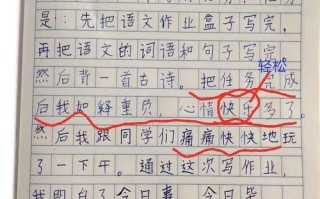 是:先把语文作业盒子写完,
再把语文的词语和句子写完,
然后背一首古诗。把任务完成
轻松
后我如释重负,心情快乐多了。
然后我跟同学们痛痛快快地玩
了一下午。通过这次写作业,
我明白了今日事,今日毕